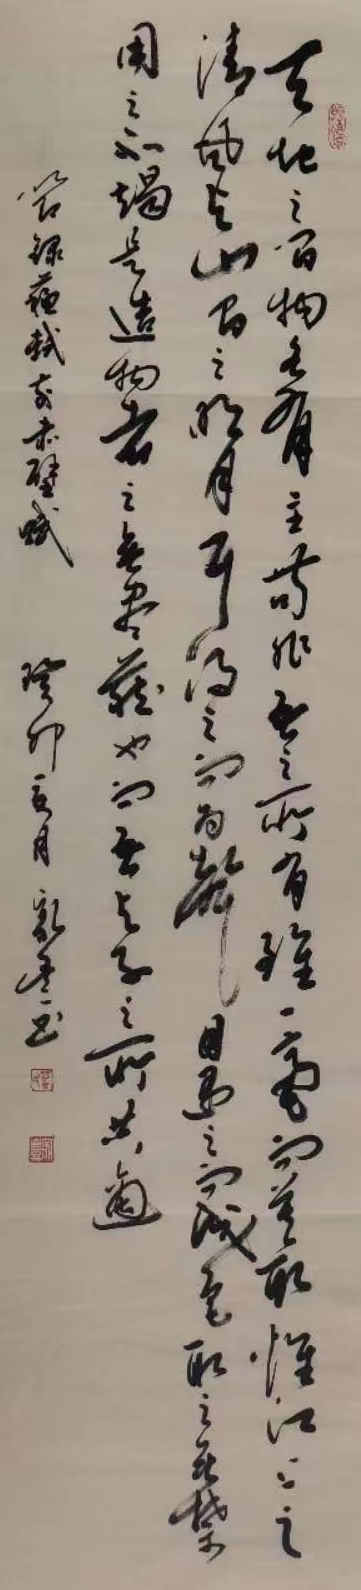 天地之間物各有主苟非吾之所有雖一毫而莫取惟江上之
清風與山間之明月耳得之而為聲目遇之而成色取之無禁
用之不竭是造物者之無盡藏也而吾與子之所共適
節錄蘇軾前赤壁賦 癸卯夏月 書